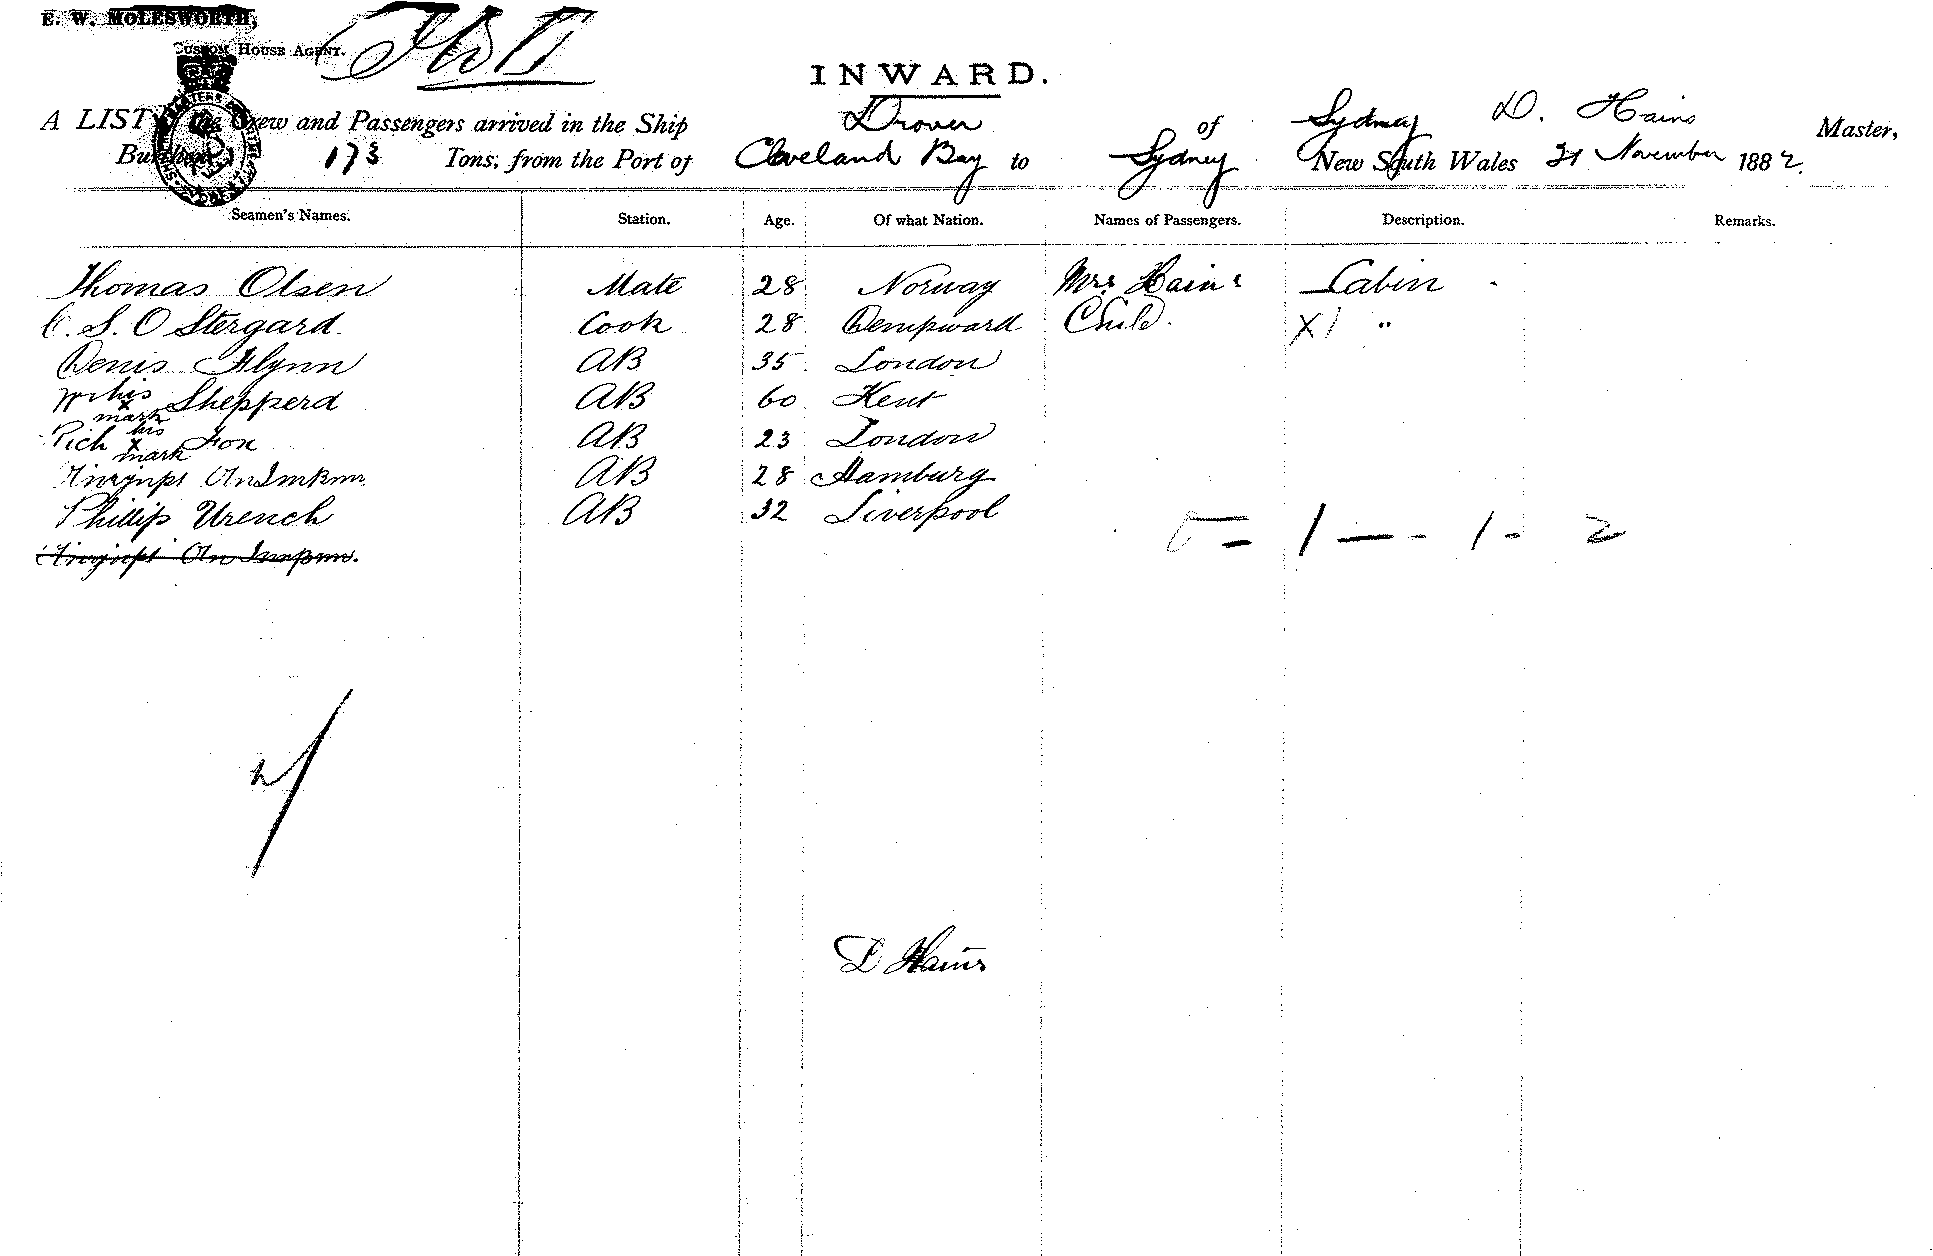 E. W. MOLESWORTH,
CUSTOM HOUSE AGENT.
INWARD.
A LIST of the Crew and Passengers arrived in the Ship Drover of Sydney D. Hains Master,
Burthen 173 Tons, from the Port of Cleveland Bay to Sydney New South Wales 21 November 1882.
Seamen's Names. Station. Age. Of what Nation. Names of Passengers. Description. Remarks.
Thomas Olsen Mate 28 Norway Mrs Hains Cabin
C. S. O Stergard Cook 28 Child X1 "
Denis Flynn AB 35 London
Wm his x mark Shepperd AB 60 Kent
Rich his x mark Fox AB 23 London
AB 28 Hamburg
Phillip Urench AB 32 Liverpool
– 1 — - 1 - 2
D Hains